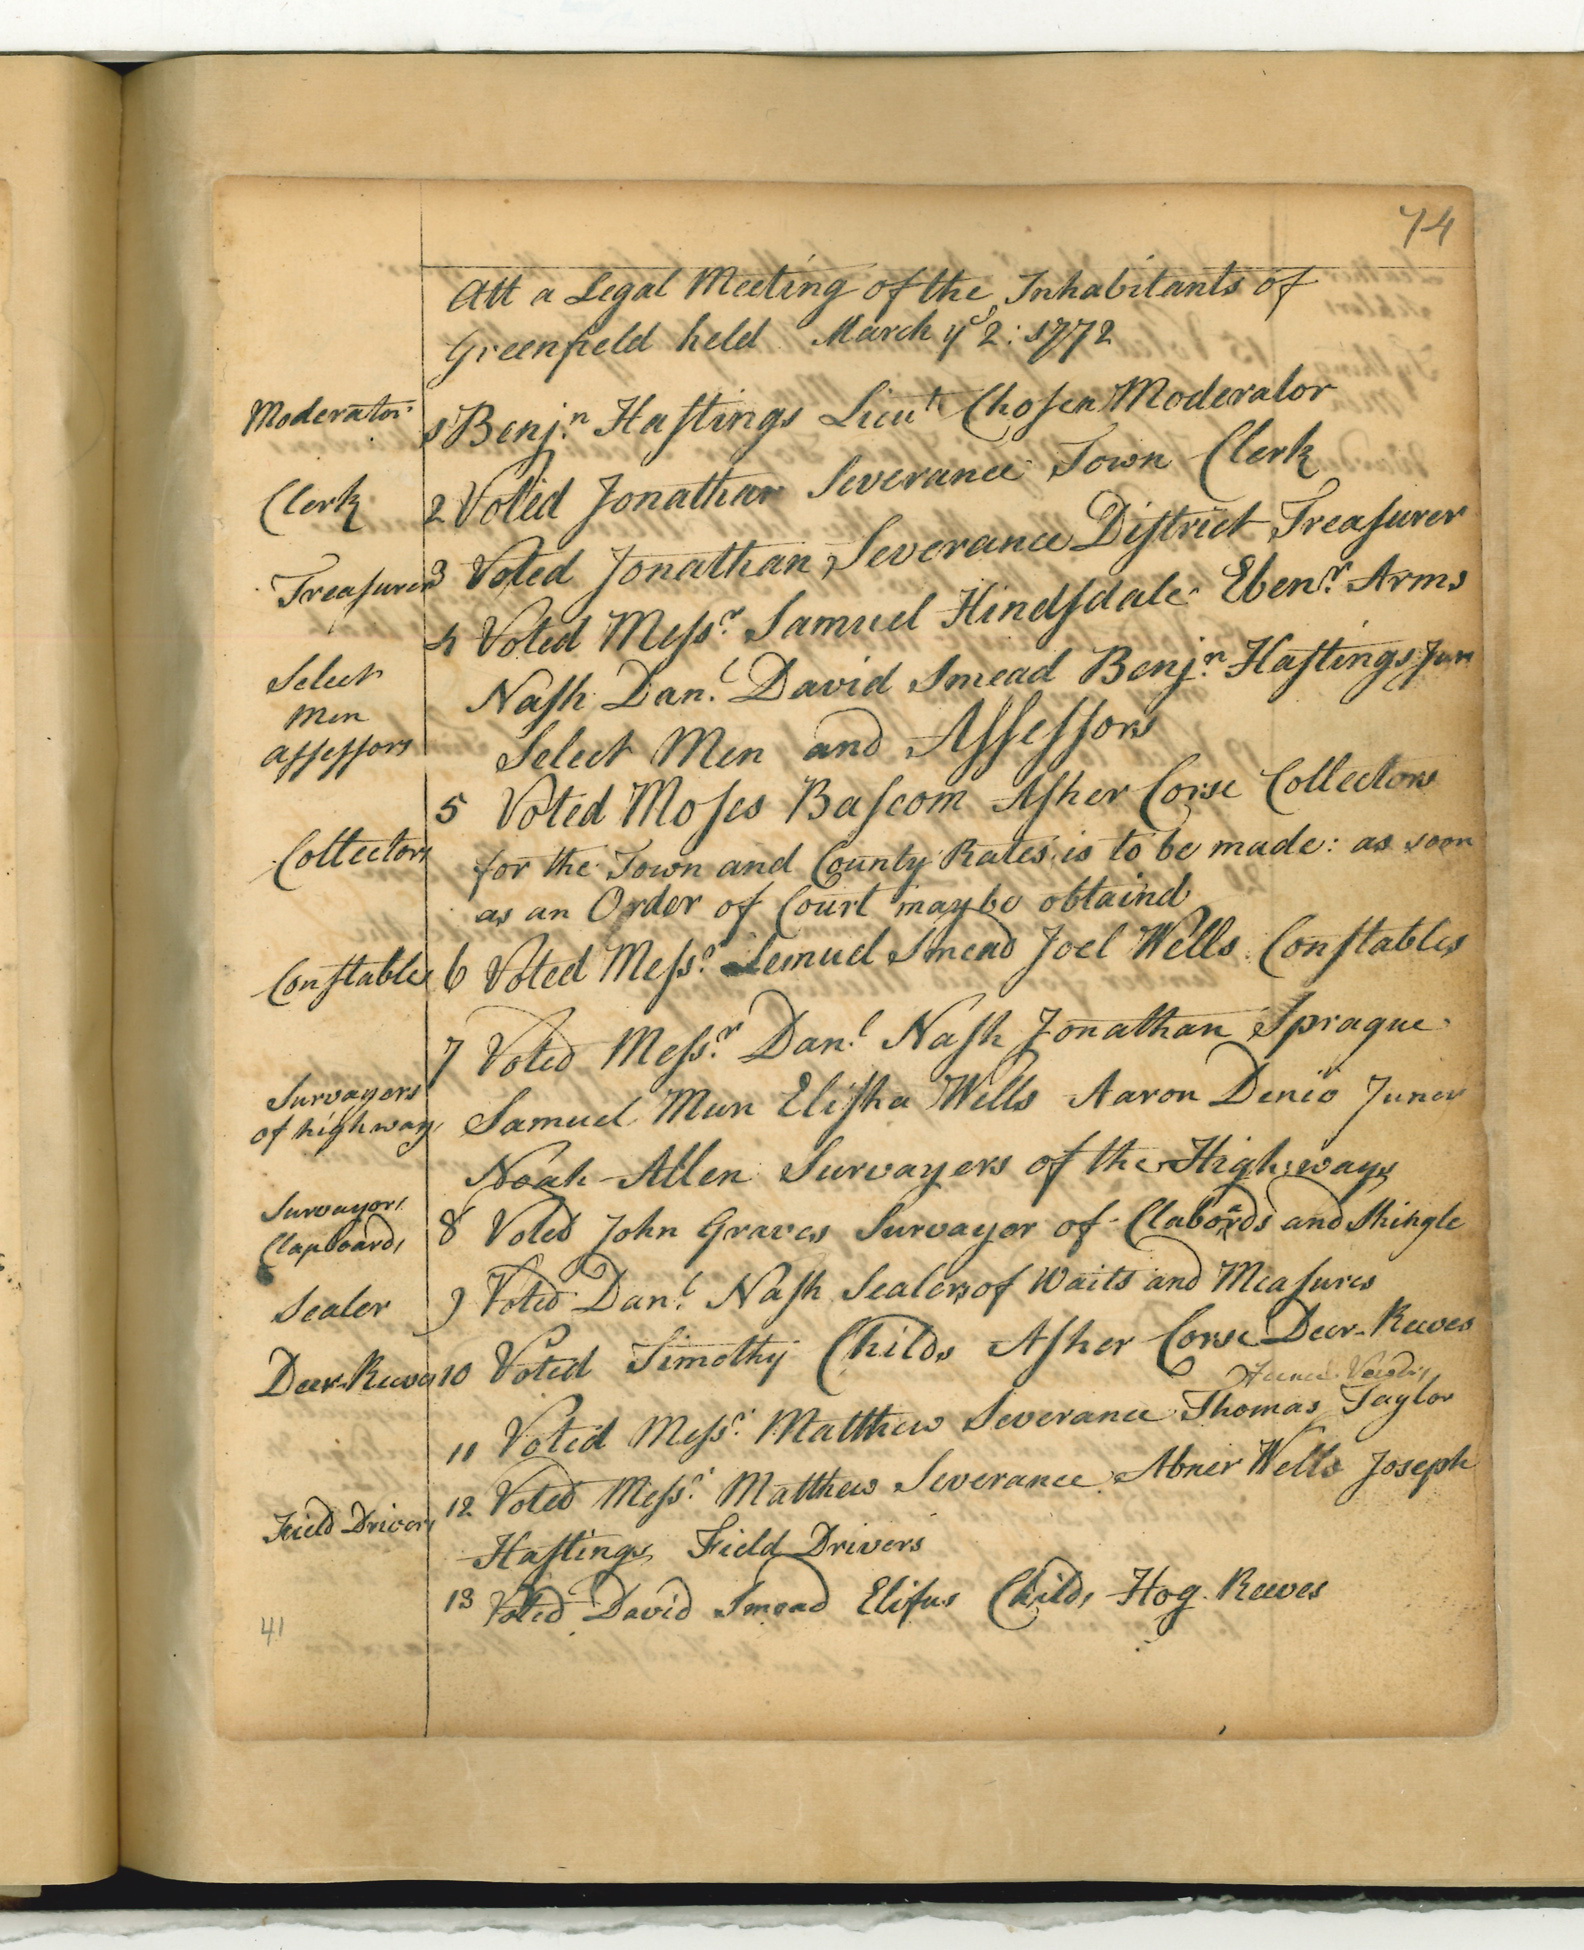 74
Att a Legal Meeting of the Inhabitants of
Greenfield held March ye 2: 1772
Moderator
1 Benjn Hastings Lieut Chosen Moderator
Clerk
2 Voted Jonathan Severance Town Clerk
Treasurer
3 Voted Jonathan Severance District Treasurer
4 Voted Messr Samuel Hindsdale Ebenr Arms
Select
Men
assessors
Nash Danl David Smead Benjn Hastings Jun
Select Men and Assessors
5 Voted Moses Bascom Asher Corse Collectors
Collectors
for the Town and County Rates is to be made: as soon
as an Order of Court may be obtaind
Constables
6 Voted Messr Lemuel Smead Joel Wells Constables
7 Voted Messr Danl Nash Jonathan Sprague
Survayers
of highways
Samuel Mun Elisha Wells Aaron Denio Juner
Noah Allen Survayers of the High ways
Survayors
Clapboards
8 Voted John Graves Survayor of Claboards and Shingle
Sealer
9 Voted Danl Nash Sealer of Waits and Measures
Deer-Reeves
10 Voted Timothy Childs Asher Corse Deer-Reeves
11 Voted Messr Matthew Severance Thomas Taylor
12 Voted Messr Matthew Severance Abner Wells Joseph
Field Drivers
Hastings Field Drivers
13 Voted David Smead Elifus Childs Hog Reeves
41